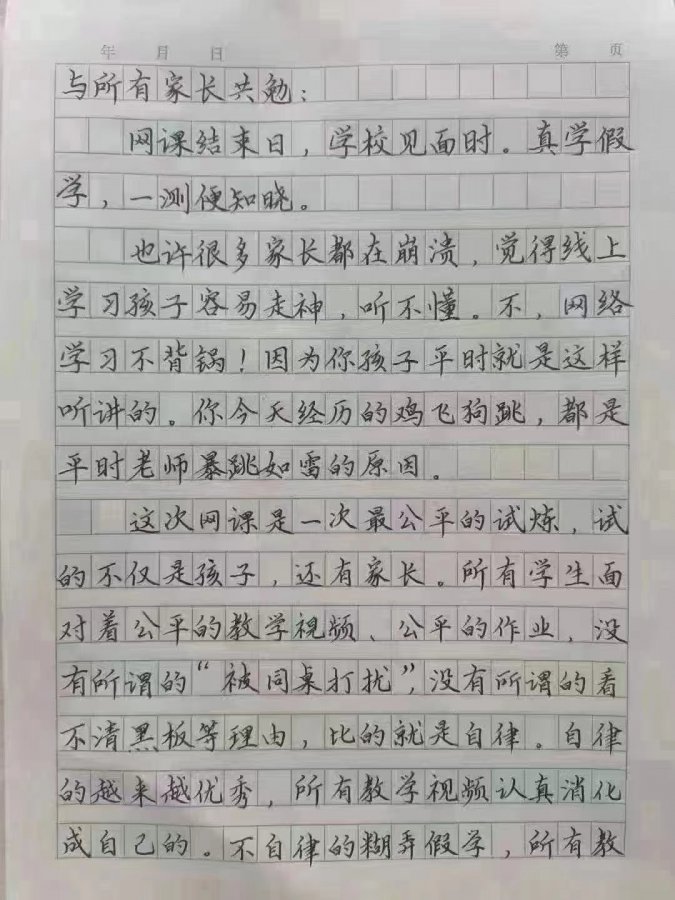 年 月 日 第 页
与所有家长共勉：
网课结束日，学校见面时。真学假
学，一测便知晓。
也许很多家长都在崩溃，觉得线上
学习孩子容易走神，听不懂。不，网络
学习不背锅！因为你孩子平时就是这样
听讲的。你今天经历的鸡飞狗跳，都是
平时老师暴跳如雷的原因。
这次网课是一次最公平的试炼，试
的不仅是孩子，还有家长。所有学生面
对着公平的教学视频、公平的作业，没
有所谓的“被同桌打扰”，没有所谓的看
不清黑板等理由，比的就是自律。自律
的越来越优秀，所有教学视频认真消化
成自己的。不自律的糊弄假学，所有教